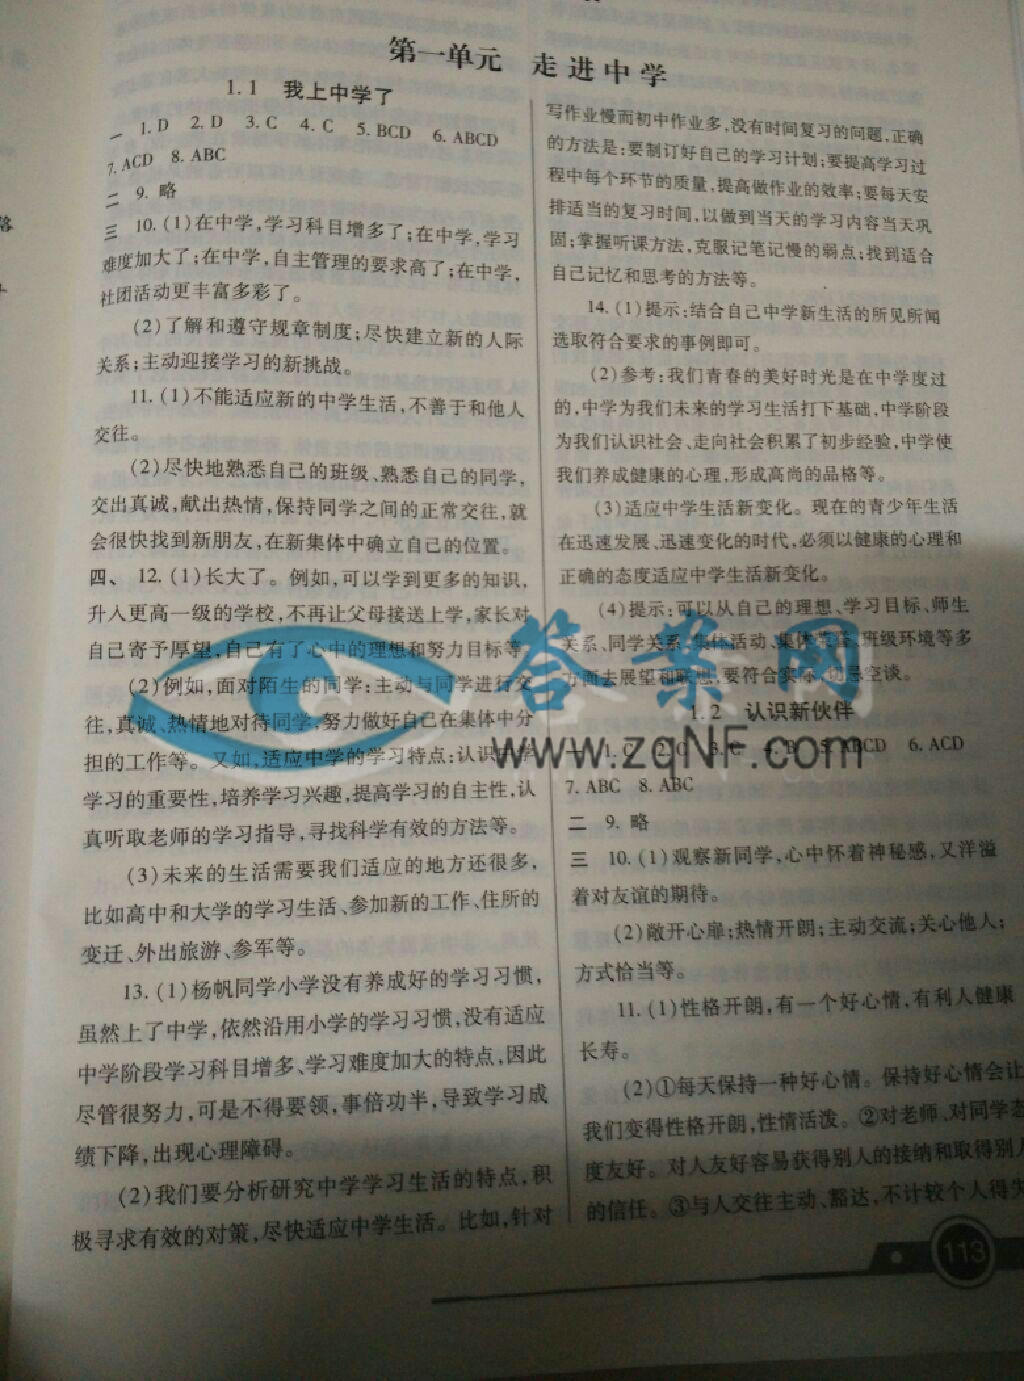 第一单元 走进中学
1.1 我上中学了
一 1. D 2. D 3. C 4. C 5. BCD 6. ABCD
7. ACD 8. ABC
二 9. 略
三 10. (1)在中学,学习科目增多了;在中学,学习
难度加大了;在中学,自主管理的要求高了;在中学,
社团活动更丰富多彩了。
(2)了解和遵守规章制度;尽快建立新的人际
关系;主动迎接学习的新挑战。
11. (1)不能适应新的中学生活,不善于和他人
交往。
(2)尽快地熟悉自己的班级、熟悉自己的同学,
交出真诚,献出热情,保持同学之间的正常交往,就
会很快找到新朋友,在新集体中确立自己的位置。
四、 12. (1)长大了。例如,可以学到更多的知识,
升入更高一级的学校,不再让父母接送上学,家长对
自己寄予厚望,自己有了心中的理想和努力目标等
(2)例如,面对陌生的同学:主动与同学进行交
往,真诚、热情地对待同学,努力做好自己在集体中分
担的工作等。又如,适应中学的学习特点:认识
学习的重要性,培养学习兴趣,提高学习的自主性,认
真听取老师的学习指导,寻找科学有效的方法等。
(3)未来的生活需要我们适应的地方还很多,
比如高中和大学的学习生活、参加新的工作、住所的
变迁、外出旅游、参军等。
13. (1)杨帆同学小学没有养成好的学习习惯,
虽然上了中学,依然沿用小学的学习习惯,没有适应
中学阶段学习科目增多、学习难度加大的特点,因此
尽管很努力,可是不得要领,事倍功半,导致学习成
绩下降,出现心理障碍。
(2)我们要分析研究中学学习生活的特点,积
极寻求有效的对策,尽快适应中学生活。比如,针对
写作业慢而初中作业多,没有时间复习的问题,正确
的方法是:要制订好自己的学习计划;要提高学习过
程中每个环节的质量,提高做作业的效率;要每天安
排适当的复习时间,以做到当天的学习内容当天巩
固;掌握听课方法,克服记笔记慢的弱点;找到适合
自己记忆和思考的方法等。
14. (1)提示:结合自己中学新生活的所见所闻
选取符合要求的事例即可。
(2)参考:我们青春的美好时光是在中学度过
的,中学为我们未来的学习生活打下基础,中学阶段
为我们认识社会、走向社会积累了初步经验,中学使
我们养成健康的心理,形成高尚的品格等。
(3)适应中学生活新变化。现在的青少年生活
在迅速发展、迅速变化的时代,必须以健康的心理和
正确的态度适应中学生活新变化。
(4)提示:可以从自己的理想、学习目标、师生
关系、同学关系、集体活动、集体荣誉、班级环境等多
方面去展望和联想,要符合实际,切忌空谈。
1.2 认识新伙伴
一 1. C 2. C 3. C 4. B 5. ABCD 6. ACD
7. ABC 8. ABC
二 9. 略
三 10. (1)观察新同学,心中怀着神秘感,又洋溢
着对友谊的期待。
(2)敞开心扉;热情开朗;主动交流;关心他人;
方式恰当等。
11. (1)性格开朗,有一个好心情,有利人健康
长寿。
(2)①每天保持一种好心情。保持好心情会让
我们变得性格开朗,性情活泼。②对老师、对同学态
度友好。对人友好容易获得别人的接纳和取得别人
的信任。③与人交往主动、豁达,不计较个人得失
113
答案网
www.zqNF.com